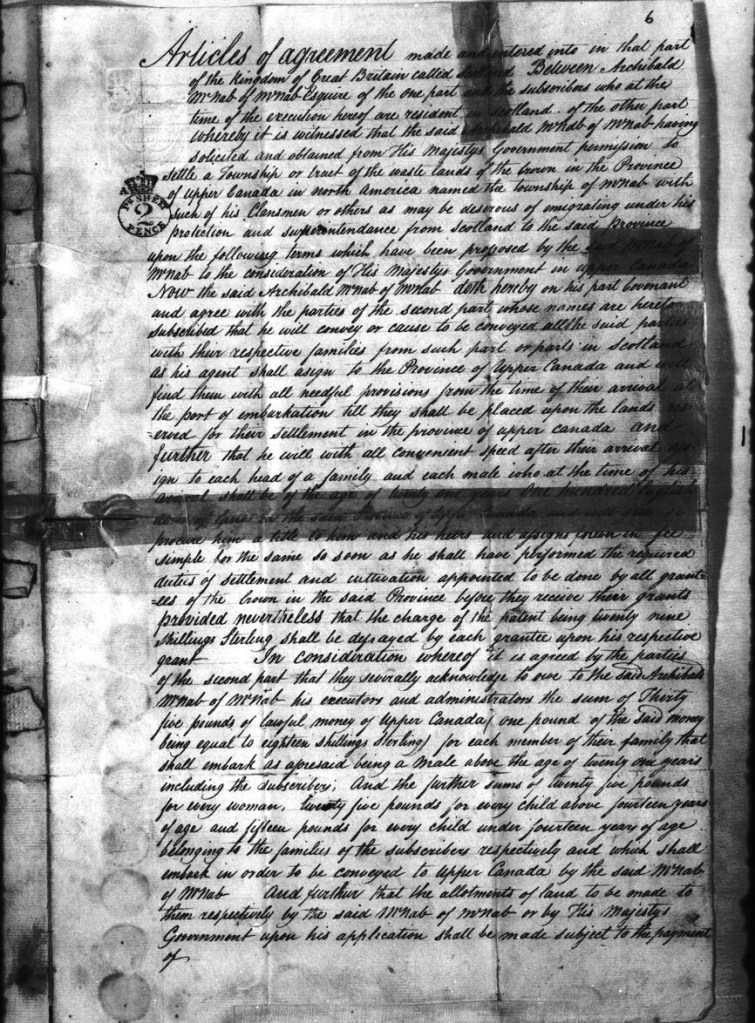 6
Articles of agreement made and entered into in that part
of the Kingdom of Great Britain called Scotland Between Archibald
McNab of McNab Esquire of the one part and the subscribers who at the
time of the execution hereof are resident in Scotland of the other part
whereby it is witnessed that the said Archibald McNab of McNab having
solicited and obtained from His Majestys Government permission to
settle a Township or tract of the waste lands of the Crown in the Province
of Upper Canada in North America named the township of McNab with
such of his Clansmen or others as may be desirous of emigrating under his
protection and superintendance from Scotland to the said Province
upon the following terms which have been proposed by the said McNab of
McNab to the consideration of His Majestys Government in Upper Canada
Now the said Archibald McNab of McNab doth hereby on his part Covenant
and agree with the parties of the second part whose names are hereto
subscribed that he will convey or cause to be conveyed all the said parties
with their respective families from such part or parts in Scotland
as his agent shall asign to the Province of Upper Canada and will
find them with all needful provisions from the time of their arrival at
the port of embarkation till they shall be placed upon the lands res
=erved for their settlement in the province of upper canada and
further that he will with all convenient speed after their arrival ass
ign to each head of a family and each male who at the time of his
arrival shall be of the age of twenty one years One hundred English
acres of land in the said Province of Upper Canada and will
procure him a title to him and his heirs and assigns forever in fee
simple for the same so soon as he shall have performed the required
duties of settlement and cultivation appointed to be done by all grant=
=ees of the Crown in the said Province before they receive their grants
provided nevertheless that the charge of the patent being twenty nine
shillings Sterling shall be defrayed by each grantee upon his respective
grant In consideration whereof it is agreed by the parties
of the second part that they severally acknowledge to owe to the said Archibald
McNab of McNab his executors and administrators the sum of Thirty
five pounds of lawful money of Upper Canada (one pound of the said money
being equal to eighteen shillings Sterling) for each member of their family that
shall embark as aforesaid being a Male above the age of twenty one years
including the subscribers; And the further sums of twenty five pounds
for every woman, twenty five pounds for every child above fourteen years
of age and fifteen pounds for every child under fourteen years of age
belonging to the families of the subscribers respectively and which shall
embark in order to be conveyed to Upper Canada by the said McNab
of McNab And further that the allotments of land to be made to
them respectively by the said McNab of McNab or by His Majestys
Government upon his application shall be made subject to the payment
of
Pr SHEET
2
PENCE